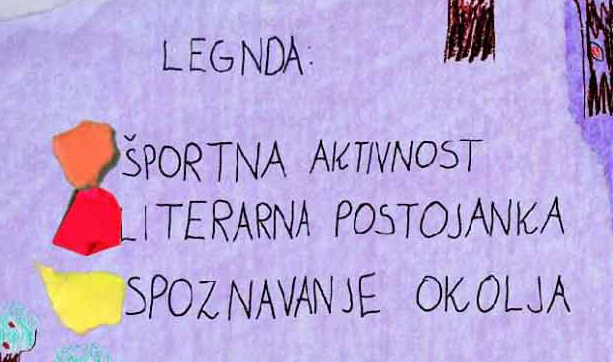 LEGNDA:
ŠPORTNA AKTIVNOST
LITERARNA POSTOJANKA
SPOZNAVANJE OKOLJA